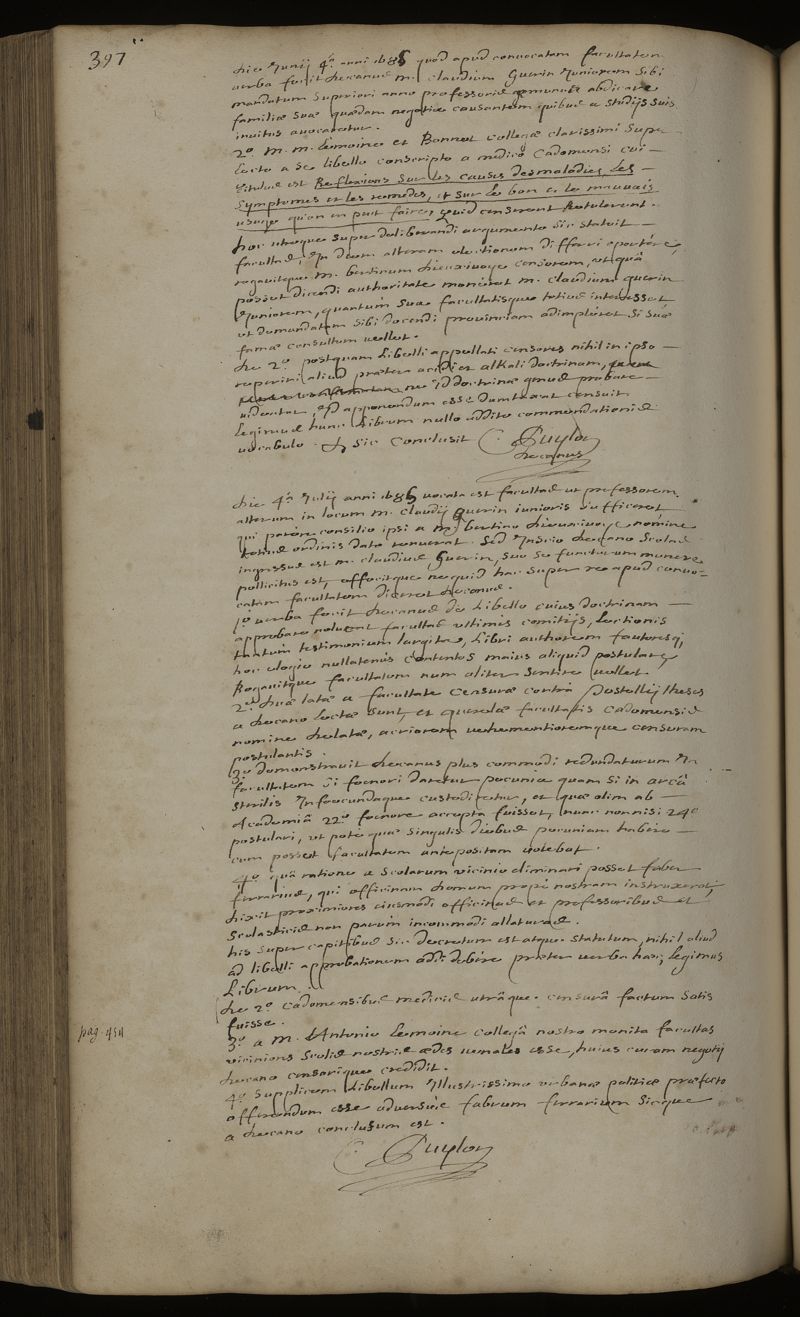 397
die Junij 4ª. anni 1686 quod apud convocatam facultatem
verba fecit decanus m. claudium Guerin Juniorem sibi
mandatum superiori anno professoris munus abdicare
familiæ suæ quædam negotia causantem quibus a studijs suis
invitus avocaretur.
2º. M. m. Lemoine et Bonnet collegæ clarissimi super
lecto a se libello conscripto a medico Cadomensi cui
titulus est Reflexions sur les causes des maladies, les
symptomes et les remedes, et sur le bon et le mauvais
usage qu'on en peut faire, quid censerent retulerunt.
hoc utroque super deliberandi argumento sic statuit
facultas, In diem alteram electionem differri oportére,
rogavitque M. bertinum dieuxivoye censorem, ut quâ
posset dicendi authoritate moneret m. claudium guerin
Juniorem, quantùm suæ facultatisque totius interesset
ut demandatam sibi docendi provinciam adimpleret si suæ
famæ consultum vellet.
de 2º. postquam libelli appellati censores nihil in ipso
reperiri aliud præter acidi et alkali doctrinam,
ne id doctrinæ genus probare
videatur, id apponendum esse dumtaxat censuit
legimus hunc librum nullo addito commendationis
vocabulo. Et sic conclusit C. Puylon
decanus
die 4ª Julij anni 1686 vocata est facultas ut professorem
alterum in locum m. claudij Guerin iunioris sufficeret
qui parere consilio ipsi a M. bertino dieuxivoye nomine
totius ordinis dato renuerat. Sed Inscio decano scolas
ingressus est m. claudius Guerin, suo se functurum munere
pollicitus est, effecitque nequid hac super re apud convo=
catam facultatem diceret decanus.
1º. verba fecit decanus de libello cuius doctrinam
approbare noluerat facultas ultimis comitijs, lectionis
tantùm testimonium largita, libri authorem fautoresq;
hoc elogio nullatenùs contentos maius aliquid postulare,
Rogavitque facultatem num aliter sentire vellet.
2º. duæ latæ a facultate censuræ contrà Postellij theses
a decano lectæ sunt, et querelæ facultatis cadomensis
nomine delatæ, acriorem vehementioremque censuram
postulantis.
3º. demonstravit decanus plus commodi redundaturum In
facultatem si foenori daretur pecunia quam si in arcâ
sterilis Infoecundaque custodiretur, et quæ olim ab
Academiâ 22º. foenore accepta fuisset, nunc nonnisi 24º
postulari, ut potè quæ singulis diebus pecuniam habere
cum posset facultatem antepositam volebat.
4º. quâ ratione a scolarum vicinio eliminari posset faber
ferrarius, qui officinam domum propè nostram instruxerat,
dixit proximiores eiusmodi officinas et professoribus et
scolasticis non parum incommodi allaturas.
his super capitibus sic decretum est atque statutum, nihil aliud
ad libelli approbationem addi debére præter verba hæc, legimus
Librum.
de 2º. cadomensibus medicis utrâque censurâ factum satis
fuisse.
pag. 454
3º. a M. Antonio Lemoine collegâ nostro monita facultas
viciniores scolis nostris ædes venales esse, huius curam negotij
decano censorique credidit.
4º. supplicem libellum Illustrissimo urbanæ politiæ præfecto
offerendum esse adversùs fabrum ferrarium sicque
a decano conclusum est.
C. Puylon